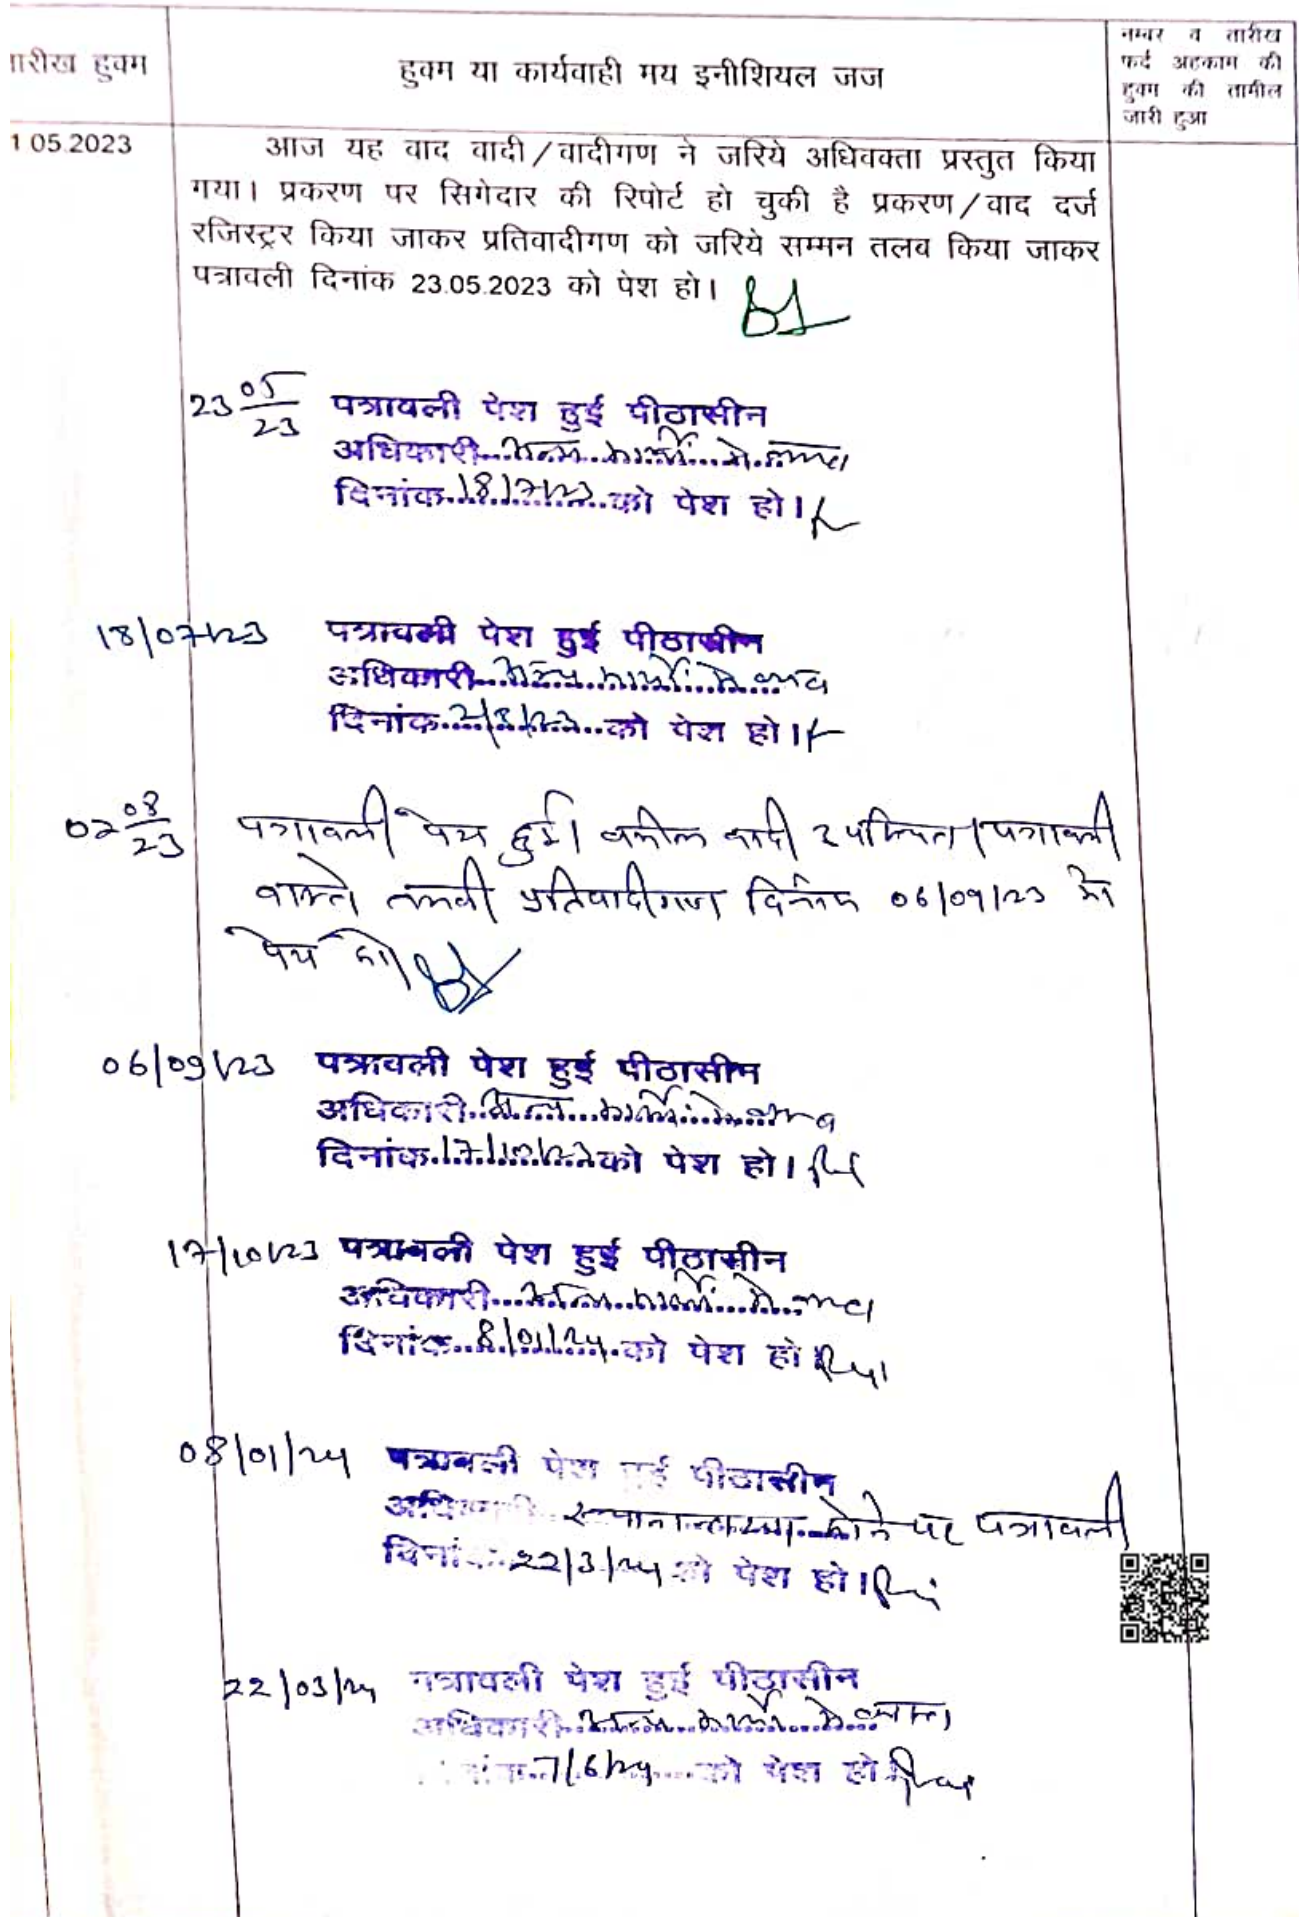 तारीख हुक्म
हुक्म या कार्यवाही मय इनीशियल जज
नम्बर व तारीख
फर्द अहकाम की
हुक्म की तामील
जारी हुआ
1 05.2023
आज यह वाद वादी/वादीगण ने जरिये अधिवक्ता प्रस्तुत किया
गया। प्रकरण पर सिगेदार की रिपोर्ट हो चुकी है प्रकरण/वाद दर्ज
रजिस्ट्रर किया जाकर प्रतिवादीगण को जरिये सम्मन तलब किया जाकर
पत्रावली दिनांक 23.05.2023 को पेश हो।
23 05/23 पत्रावली पेश हुई पीठासीन
अधिकारी अन्य कार्यो में व्यस्त
दिनांक 18/7/23 को पेश हो।
18/07/23 पत्रावली पेश हुई पीठासीन
अधिकारी अन्य कार्यो में व्यस्त
दिनांक 2/8/23 को पेश हो।
02 08/23 पत्रावली पेश हुई। वकील वादी उपस्थित। पत्रावली
वास्ते तलबी प्रतिवादीगण दिनांक 06/09/23 को
पेश हो।
06/09/23 पत्रावली पेश हुई पीठासीन
अधिकारी अन्य कार्यो में व्यस्त
दिनांक 17/10/23 को पेश हो।
17/10/23 पत्रावली पेश हुई पीठासीन
अधिकारी अन्य कार्यो में व्यस्त
दिनांक 8/01/24 को पेश हो
08/01/24 पत्रावली पेश हुई पीठासीन
अधिकारी स्थानान्तरण होने पर पत्रावली
दिनांक 22/3/24 को पेश हो।
22/03/24 पत्रावली पेश हुई पीठासीन
अधिकारी अन्य कार्यो में व्यस्त
दिनांक 7/6/24 को पेश हो